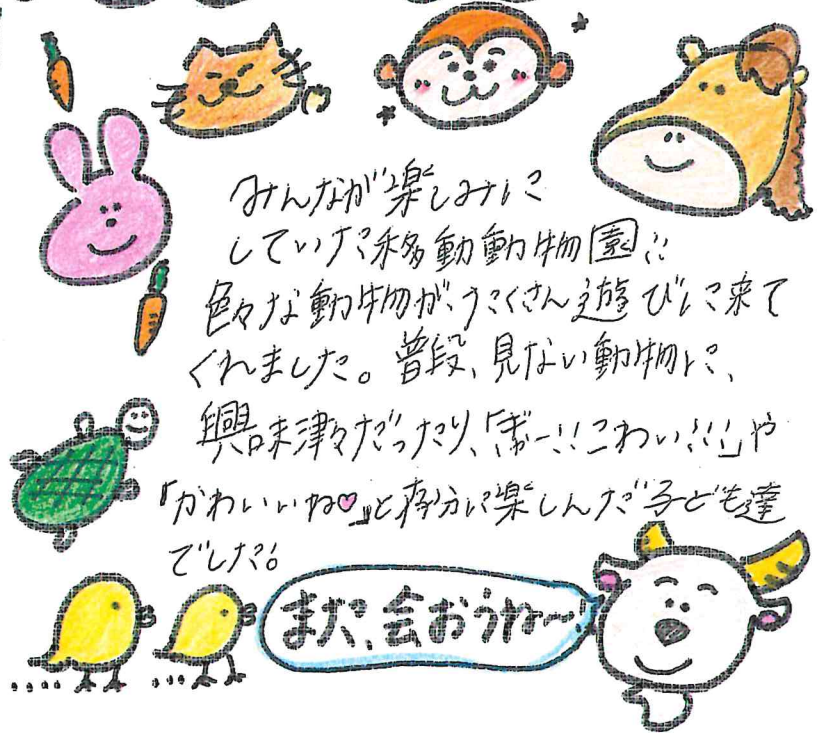 みんなが楽しみに
していた移動動物園!!
色々な動物が、たくさん遊びに来て
くれました。普段、見ない動物に、
興味津々だったり、「ぎゃー!!こわい!!!」や
「かわいいね♡」と存分に楽しんだ子ども達
でした!!
また、会おうね〜!